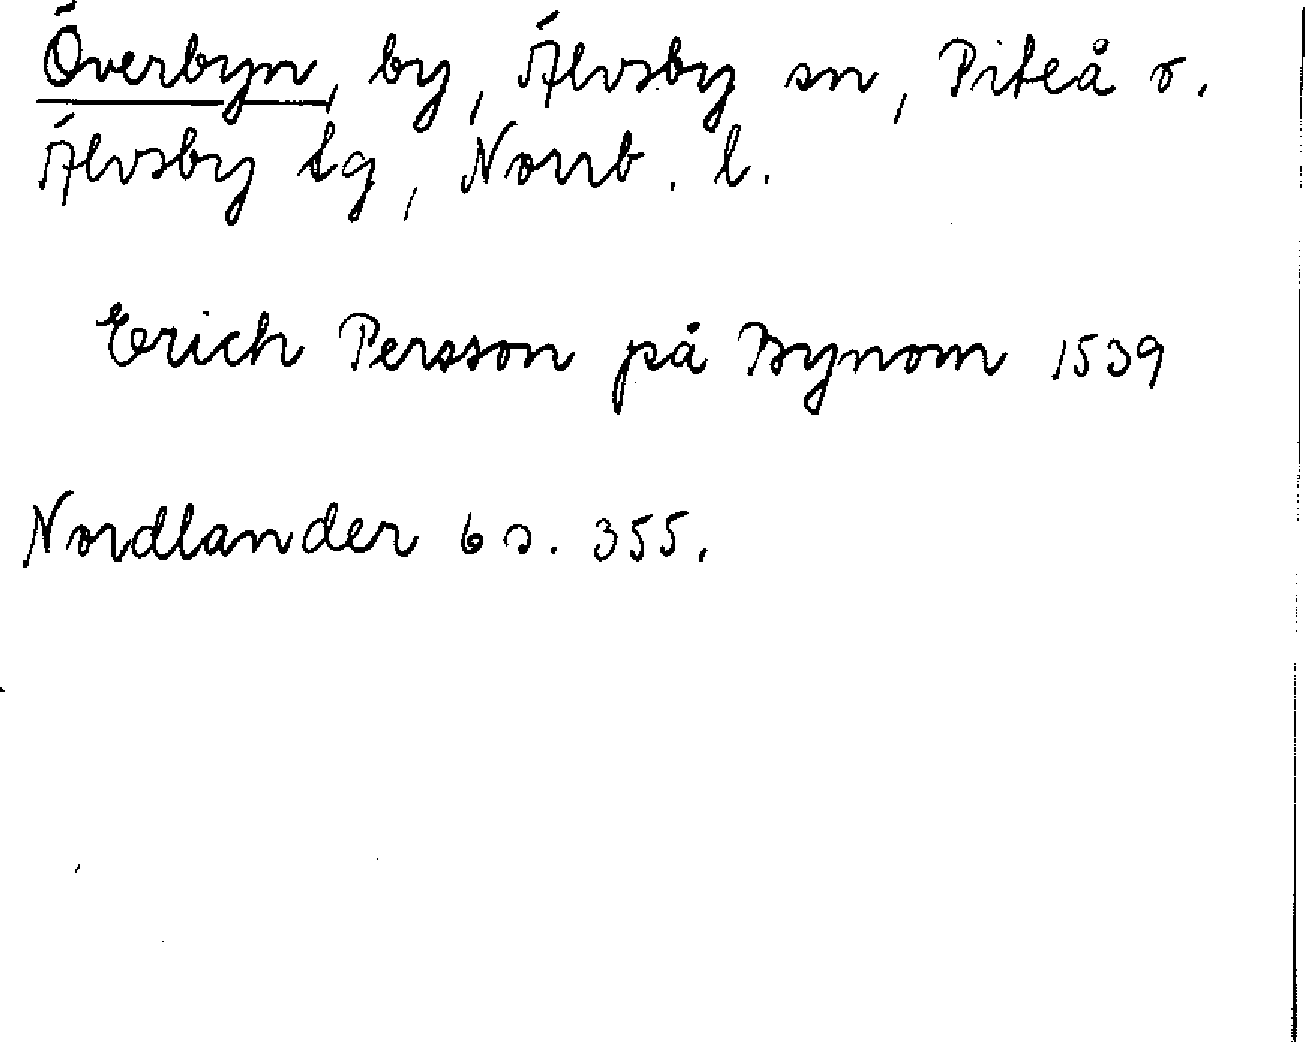 Överbyn, by, Älvsby sn, Piteå o.
Älvsby tg, Norrb. l.
Erich Persson på Bynom 1539
Nordlander 6 s. 355.